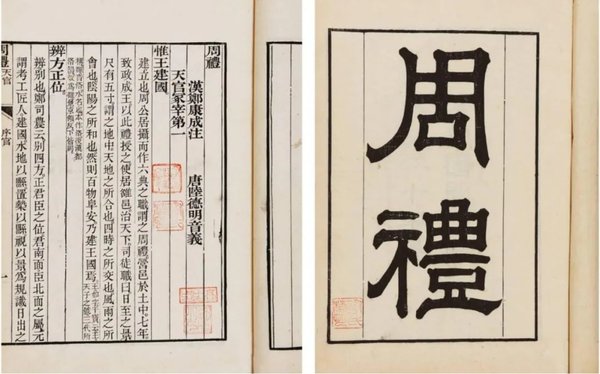 周禮
周禮
漢鄭康成注 唐陸德明音義
天官冢宰第一
惟王建國
建立也周公居攝而作六典之職謂之周禮營邑於土中七年
致政成王以此禮授之使居雒邑治天下司徒職曰日至之景
尺有五寸謂之地中天地之所合也四時之所交也風雨之所
會也陰陽之所和也然則百物阜安乃建王國焉
辨方正位
辨别也鄭司農云别四方正君臣之位君南面臣北面之屬元
謂考工匠人建國水地以縣置槷以縣視以景爲規識日出之
周禮 天官 序官 一